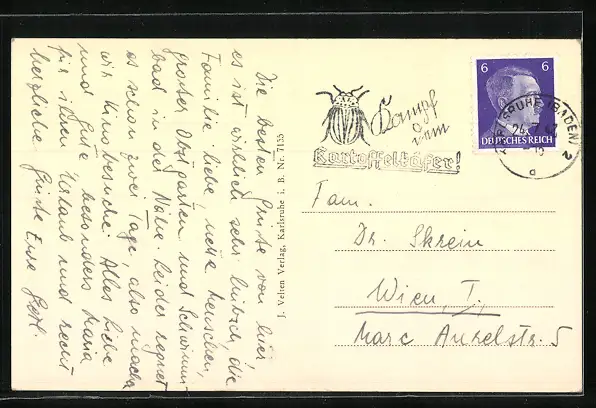 Die besten Grüße von hier!
es ist wirklich sehr hübsch, die
Familie liebe, nette Menschen,
großer Obstgarten und Schwimm-
bad in der Nähe. Leider regnet
es schon zwei Tage, also machen
wir Kinobesuche. Alles Liebe
und Gute besonders Maria
für ihren Urlaub und recht
herzliche Grüße Eure
J. Velten Verlag, Karlsruhe i. B. Nr. 1135
Kampf
dem
Kartoffelkäfer!
6 6
DEUTSCHES REICH
KARLSRUHE (BADEN)
2
a
Fam.
Dr. Skrein
Wien, I.,
Marc Aurelstr. 5